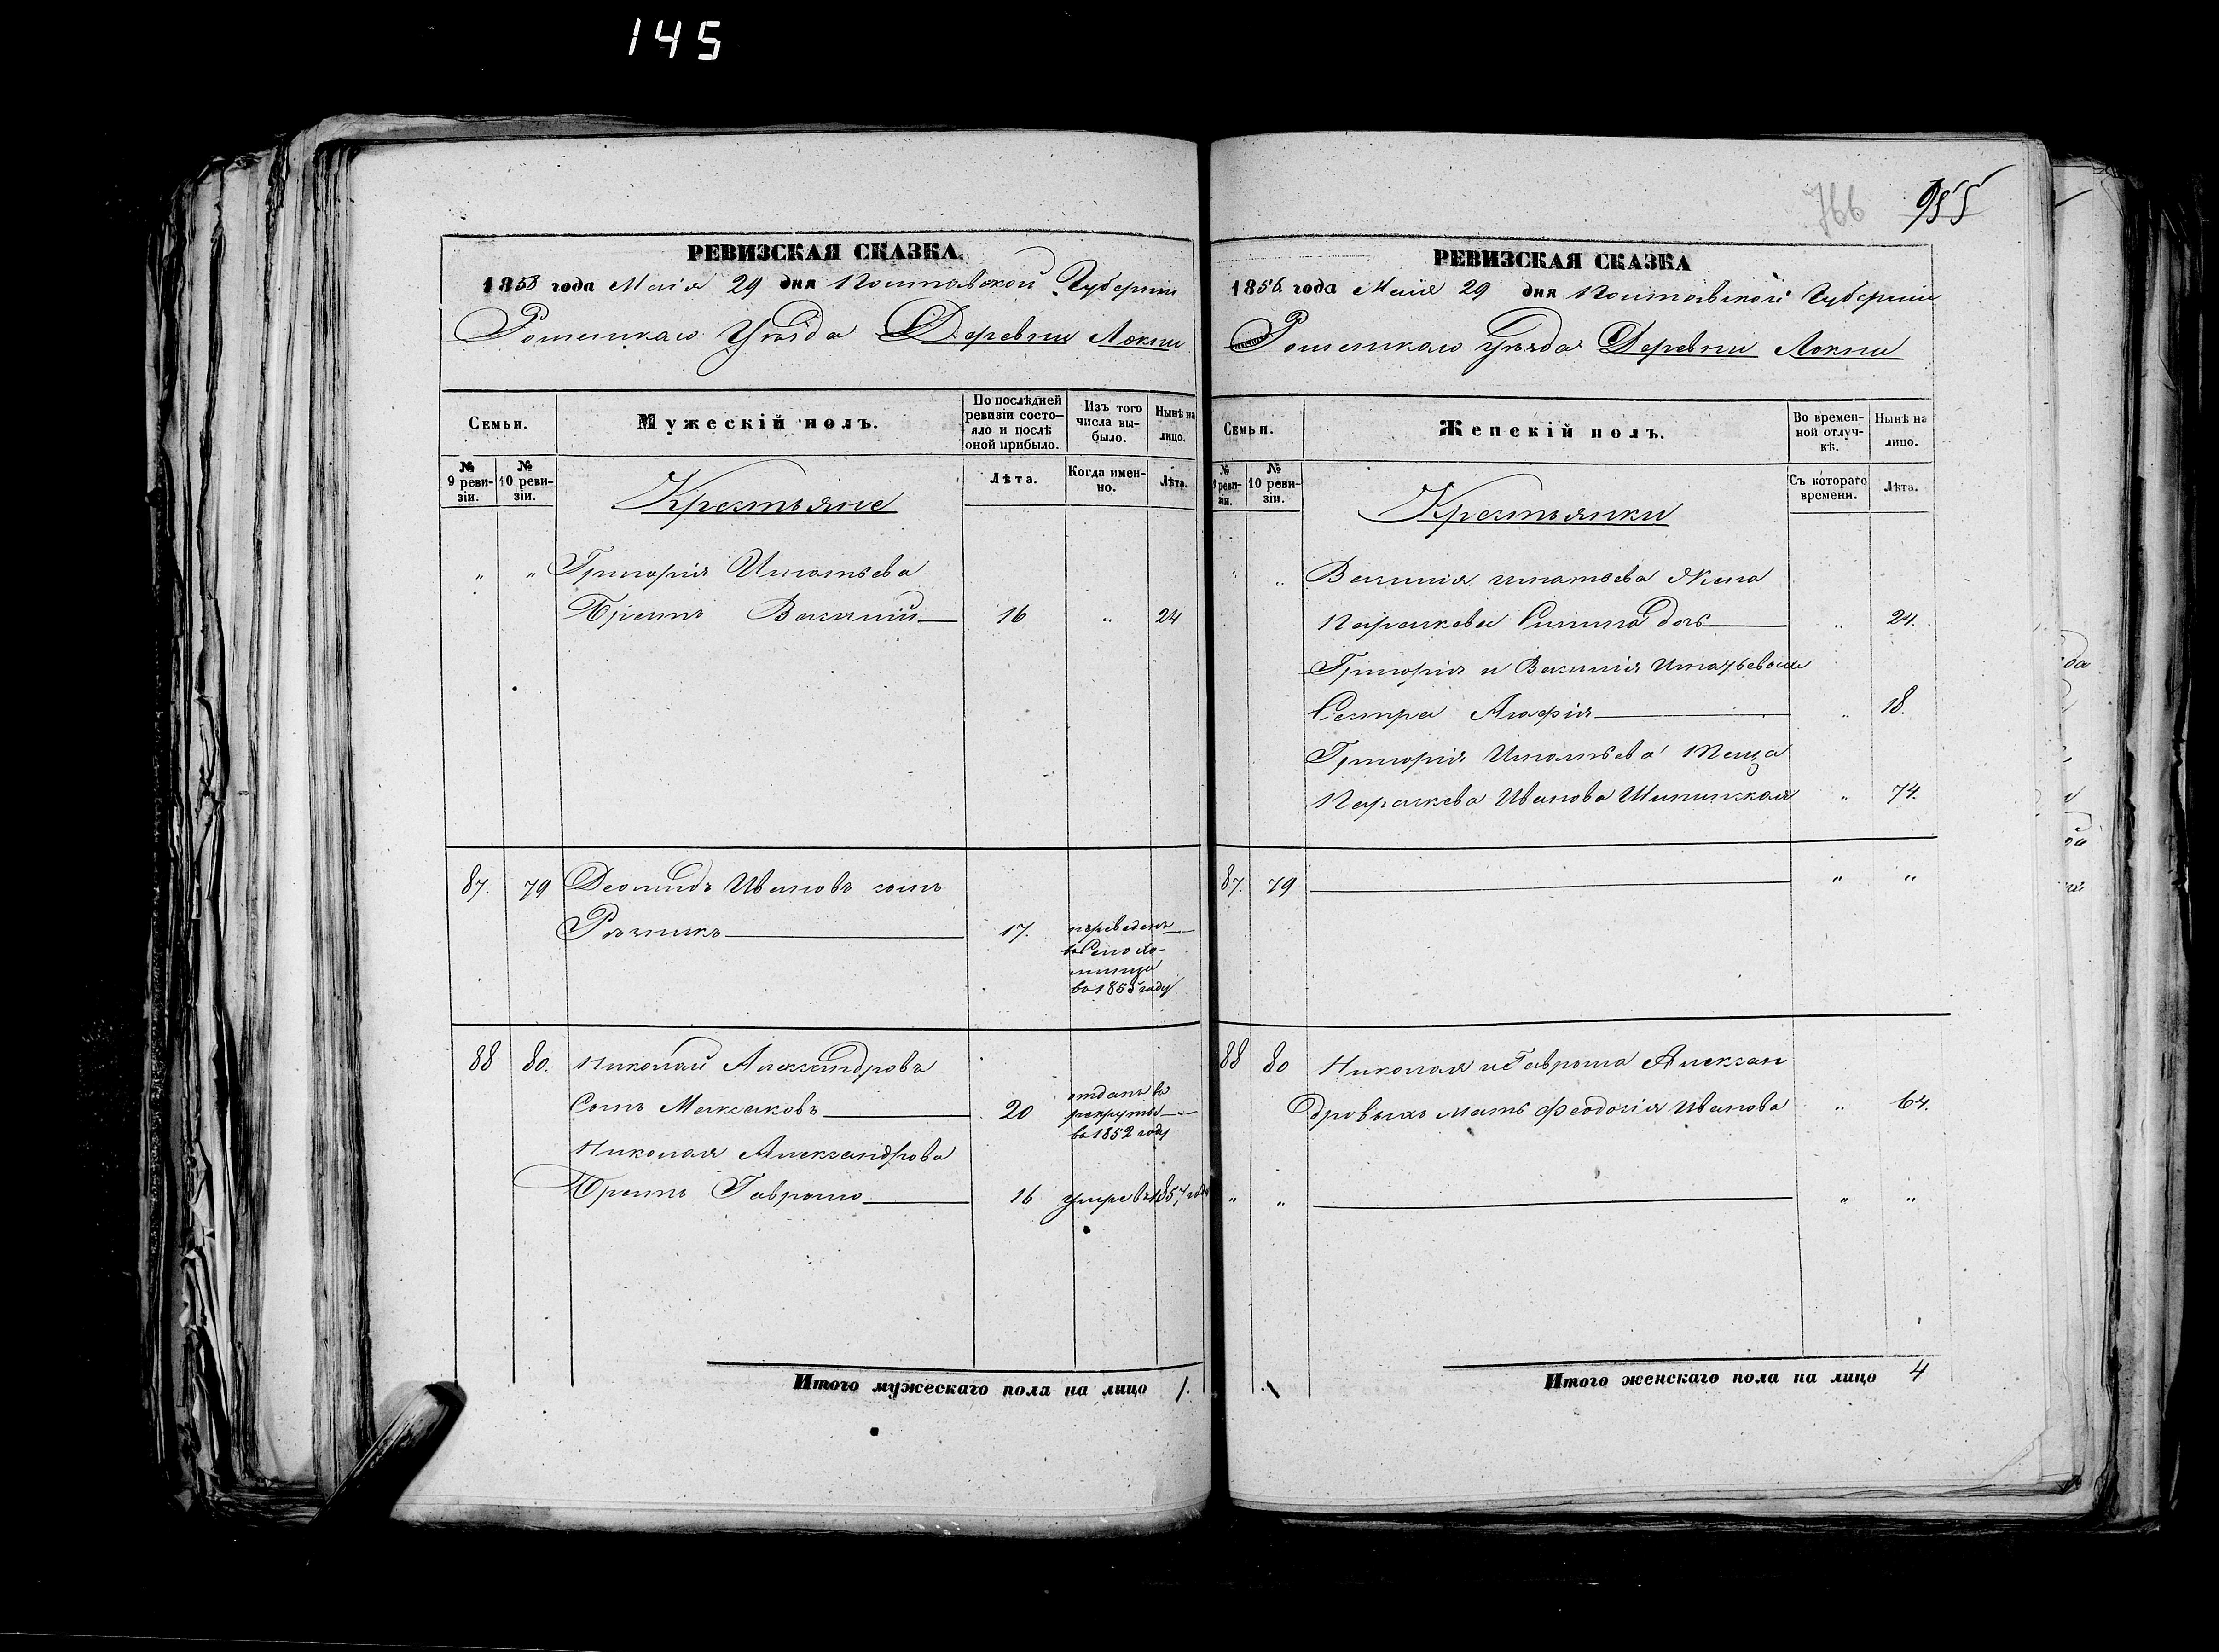 145
РЕВИЗСКАЯ СКАЗКА.
1858 года Маія 29 дня Полтавской Губерніи
Роменскаго Уѣзда Деревни Локни
Семьи.
Мужескій полъ.
По послѣдней ревизіи состо-
яло и послѣ
оной прибыло.
Изъ того
числа вы-
было.
Нынѣ на
лицо.
№
9 реви-
зіи.
№
10 реви-
зіи.
Крестьяне
Лѣта.
Когда имен-
но.
Лѣта.
" " Григорія Игнатьева
Братъ Василій 16 " 24
87. 79 Леонидъ Ивановъ сынъ
17. переведенъ
въ Село
въ 1855 году
88 80. Николай Александровъ
Сынъ Максаковъ 20 отданъ въ
рекруты
въ 1852 году
Николая Александрова
Братъ Гаврыло 16 умре въ 1857 году
Итого мужескаго пола на лицо 1.
766 955
РЕВИЗСКАЯ СКАЗКА
1858. года Маія 29 дня Полтавской Губерніи
Роменскаго Уѣзда Деревни Локни
Семьи.
Женскій полъ.
Во времен-
ной отлуч-
кѣ.
Нынѣ на
лицо.
№
9 реви-
зіи.
№
10 реви-
зіи.
Крестьянки
Съ котораго
времени.
Лѣта.
" " Василія Игнатьева Жена
Параскева дочь " 24.
Григорія и Василія Игнатьевыхъ
Сестра Агафія " 18.
Григорія Игнатьева Теща
Параскева Иванова " 74.
87. 79 " "
88 80 Николая и Гаврыла Алексан
дровыхъ мать Феодосія Иванова " 64.
" " " "
Итого женскаго пола на лицо 4